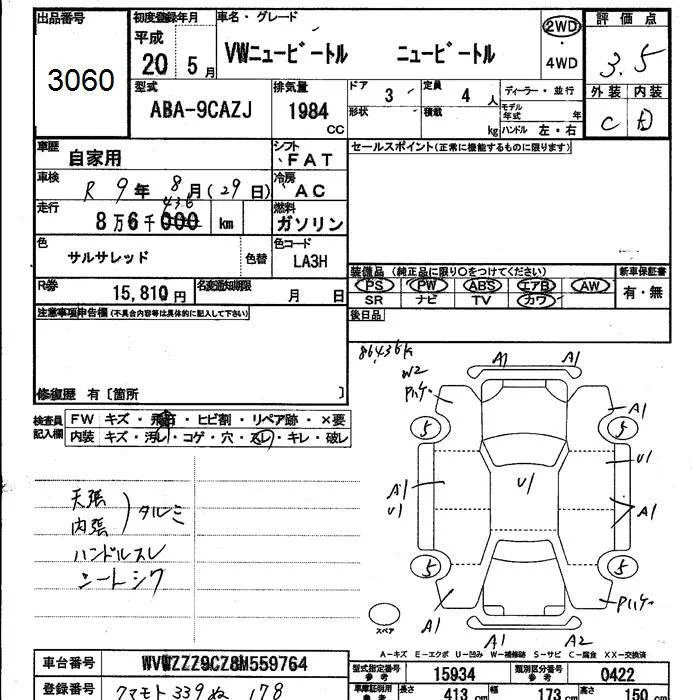 出品番号 初度登録年月 車名・グレード 2WD 評価点
3060 平成 20年 5月 VWニュービートル ニュービートル ・ 4WD 3.5
型式 排気量 ドア 3 定員 4人 ディーラー・並行 外装 内装
ABA-9CAZJ 1984 CC 形状 積載 kg モデル年式 年 C D
ハンドル 左・右
車歴 自家用 シフト FAT セールスポイント(正常に機能するものに限ります)
車検 R 9年 8月(29日) 冷房 AC
走行 8万6千000 km 436 燃料 ガソリン
色 サルサレッド 色替 色コード LA3H
装備品(純正品に限り○をつけてください) 新車保証書
R券 15,810円 名変通知期限 月 日 PS PW ABS エアB AW 有・無
SR ナビ TV カワ
注意事項申告欄(不具合内容等は具体的に記入して下さい) 後日品
86436k
W2
修復歴 有〔箇所 〕
検査員記入欄 FW キズ・飛石・ヒビ割・リペア跡・×要
内装 キズ・汚レ・コゲ・穴・スレ・キレ・破レ
A1 A1
Pハゲ A1
5 5
U1 U1
A1 U1 A1
天張
内張 タルミ
ハンドルスレ
シートシワ
5 5
A1 Pハゲ
スペア A1 A2
A-キズ E-エクボ U-凹み W-補修跡 S-サビ C-腐食 XX-交換済
車台番号 WVWZZZ9CZ8M559764 型式指定番号 参考 15934 類別区分番号 参考 0422
登録番号 クマモト 339 ぬ 178 車庫証明用 参考 長さ 413 cm 幅 173 cm 高さ 150 cm